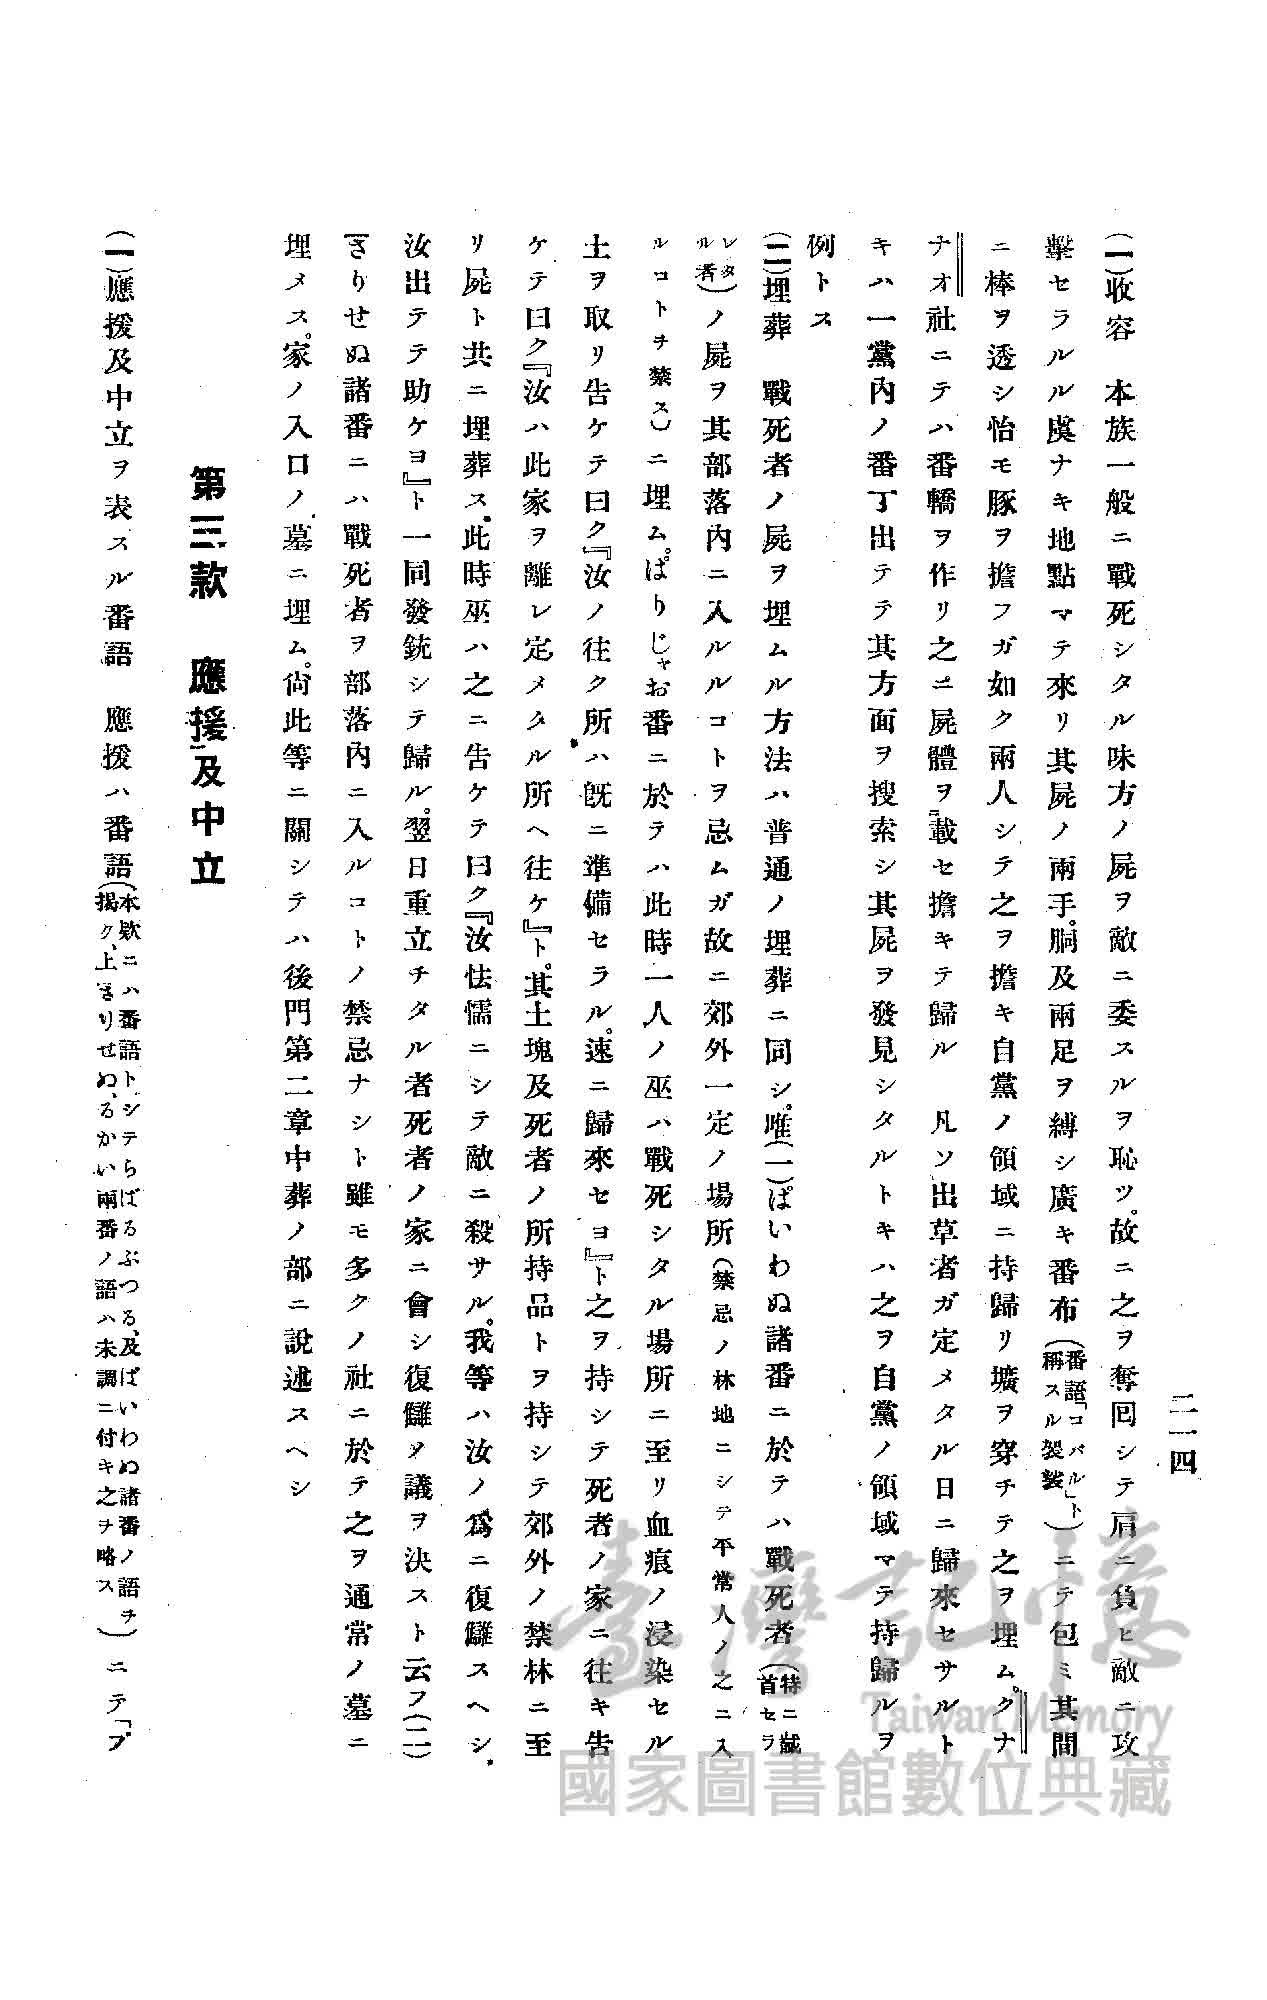 二一四
(一)收容　本族一般ニ戰死シタル味方ノ屍ヲ敵ニ委スルヲ恥ツ。故ニ之ヲ奪囘シテ肩ニ負ヒ敵ニ攻
擊セラルル虞ナキ地點マテ來リ其屍ノ兩手。胴及兩足ヲ縛シ廣キ番布(番語「コバル」ト稱スル袈裟)ニテ包ミ其間
ニ棒ヲ透シ恰モ豚ヲ擔フガ如ク兩人シテ之ヲ擔キ自黨ノ領域ニ持歸リ壙ヲ穿チテ之ヲ埋ム。クナ
ナオ社ニテハ番轎ヲ作リ之ニ屍體ヲ載セ擔キテ歸ル　凡ソ出草者ガ定メタル日ニ歸來セサルト
キハ一黨內ノ番丁出テテ其方面ヲ搜索シ其屍ヲ發見シタルトキハ之ヲ自黨ノ領域マテ持歸ルヲ
例トス
(二)埋葬　戰死者ノ屍ヲ埋ムル方法ハ普通ノ埋葬ニ同シ。唯(一)ぱいわぬ諸番ニ於テハ戰死者(特ニ馘首セラ
レタル者)ノ屍ヲ其部落內ニ入ルルコトヲ忌ムガ故ニ郊外一定ノ場所(禁忌ノ林地ニシテ平常人ノ之ニ入
ルコトヲ禁ス)ニ埋ム。ぱりじゃお番ニ於テハ此時一人ノ巫ハ戰死シタル場所ニ至リ血痕ノ浸染セル
土ヲ取リ告ケテ曰ク『汝ノ往ク所ハ旣ニ準備セラル。速ニ歸來セヨ』ト之ヲ持シテ死者ノ家ニ往キ告
ケテ曰ク『汝ハ此家ヲ離レ定メタル所ヘ往ケ』ト。其土塊及死者ノ所持品トヲ持シテ郊外ノ禁林ニ至
リ屍ト共ニ埋葬ス。此時巫ハ之ニ告ケテ曰ク『汝怯懦ニシテ敵ニ殺サル。我等ハ汝ノ爲ニ復讎スヘシ。
汝出テテ助ケヨ』ト一同發銃シテ歸ル。翌日重立チタル者死者ノ家ニ會シ復讎ノ議ヲ決スト云フ(二)
さりせぬ諸番ニハ戰死者ヲ部落內ニ入ルコトノ禁忌ナシト雖モ多クノ社ニ於テ之ヲ通常ノ墓ニ
埋メス。家ノ入口ノ墓ニ埋ム。尙此等ニ關シテハ後門第二章中葬ノ部ニ說述スヘシ
第三款　應援及中立
(一)應援及中立ヲ表スル番語　應援ハ番語(本欵ニハ番語トシテらばるぶつる、及ぱいわぬ諸番ノ語ヲ揭ク、上さりせぬ、るかい兩番ノ語ハ未調ニ付キ之ヲ略ス)ニテ「ブ
臺灣記憶
Taiwan Memory
國家圖書館數位典藏